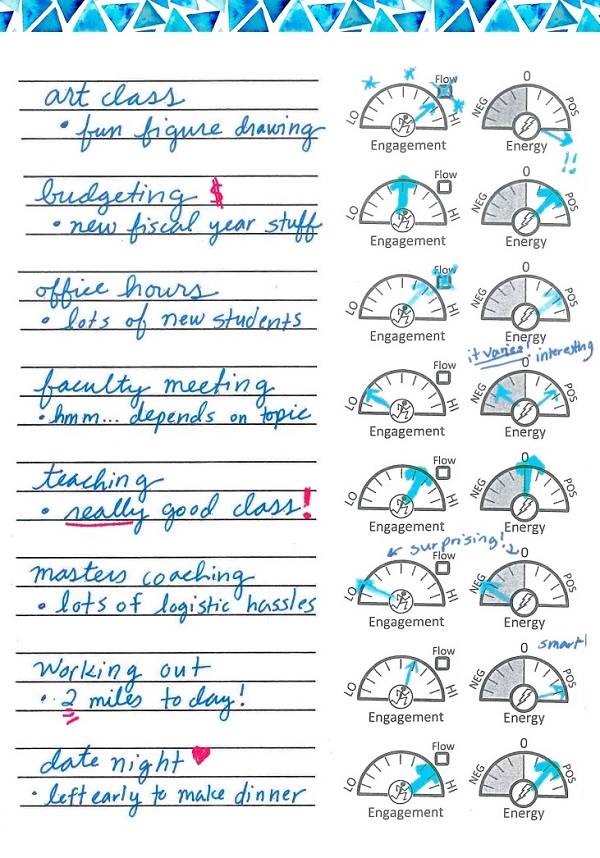 art class
• fun figure drawing
Flow
LO
HI
Engagement
0
NEG
POS
Energy
!!
budgeting $
• new fiscal year stuff
Flow
LO
HI
Engagement
0
NEG
POS
Energy
office hours
• lots of new students
Flow
LO
HI
Engagement
0
NEG
POS
Energy
it varies! interesting
faculty meeting
• hmm... depends on topic
Flow
LO
HI
Engagement
0
NEG
POS
Energy
teaching
• really good class!
Flow
LO
HI
Engagement
0
NEG
POS
Energy
surprising!
masters coaching
• lots of logistic hassles
Flow
LO
HI
Engagement
0
NEG
POS
Energy
smart!
working out
• 2 miles today!
Flow
LO
HI
Engagement
0
NEG
POS
Energy
date night
• left early to make dinner
Flow
LO
HI
Engagement
0
NEG
POS
Energy